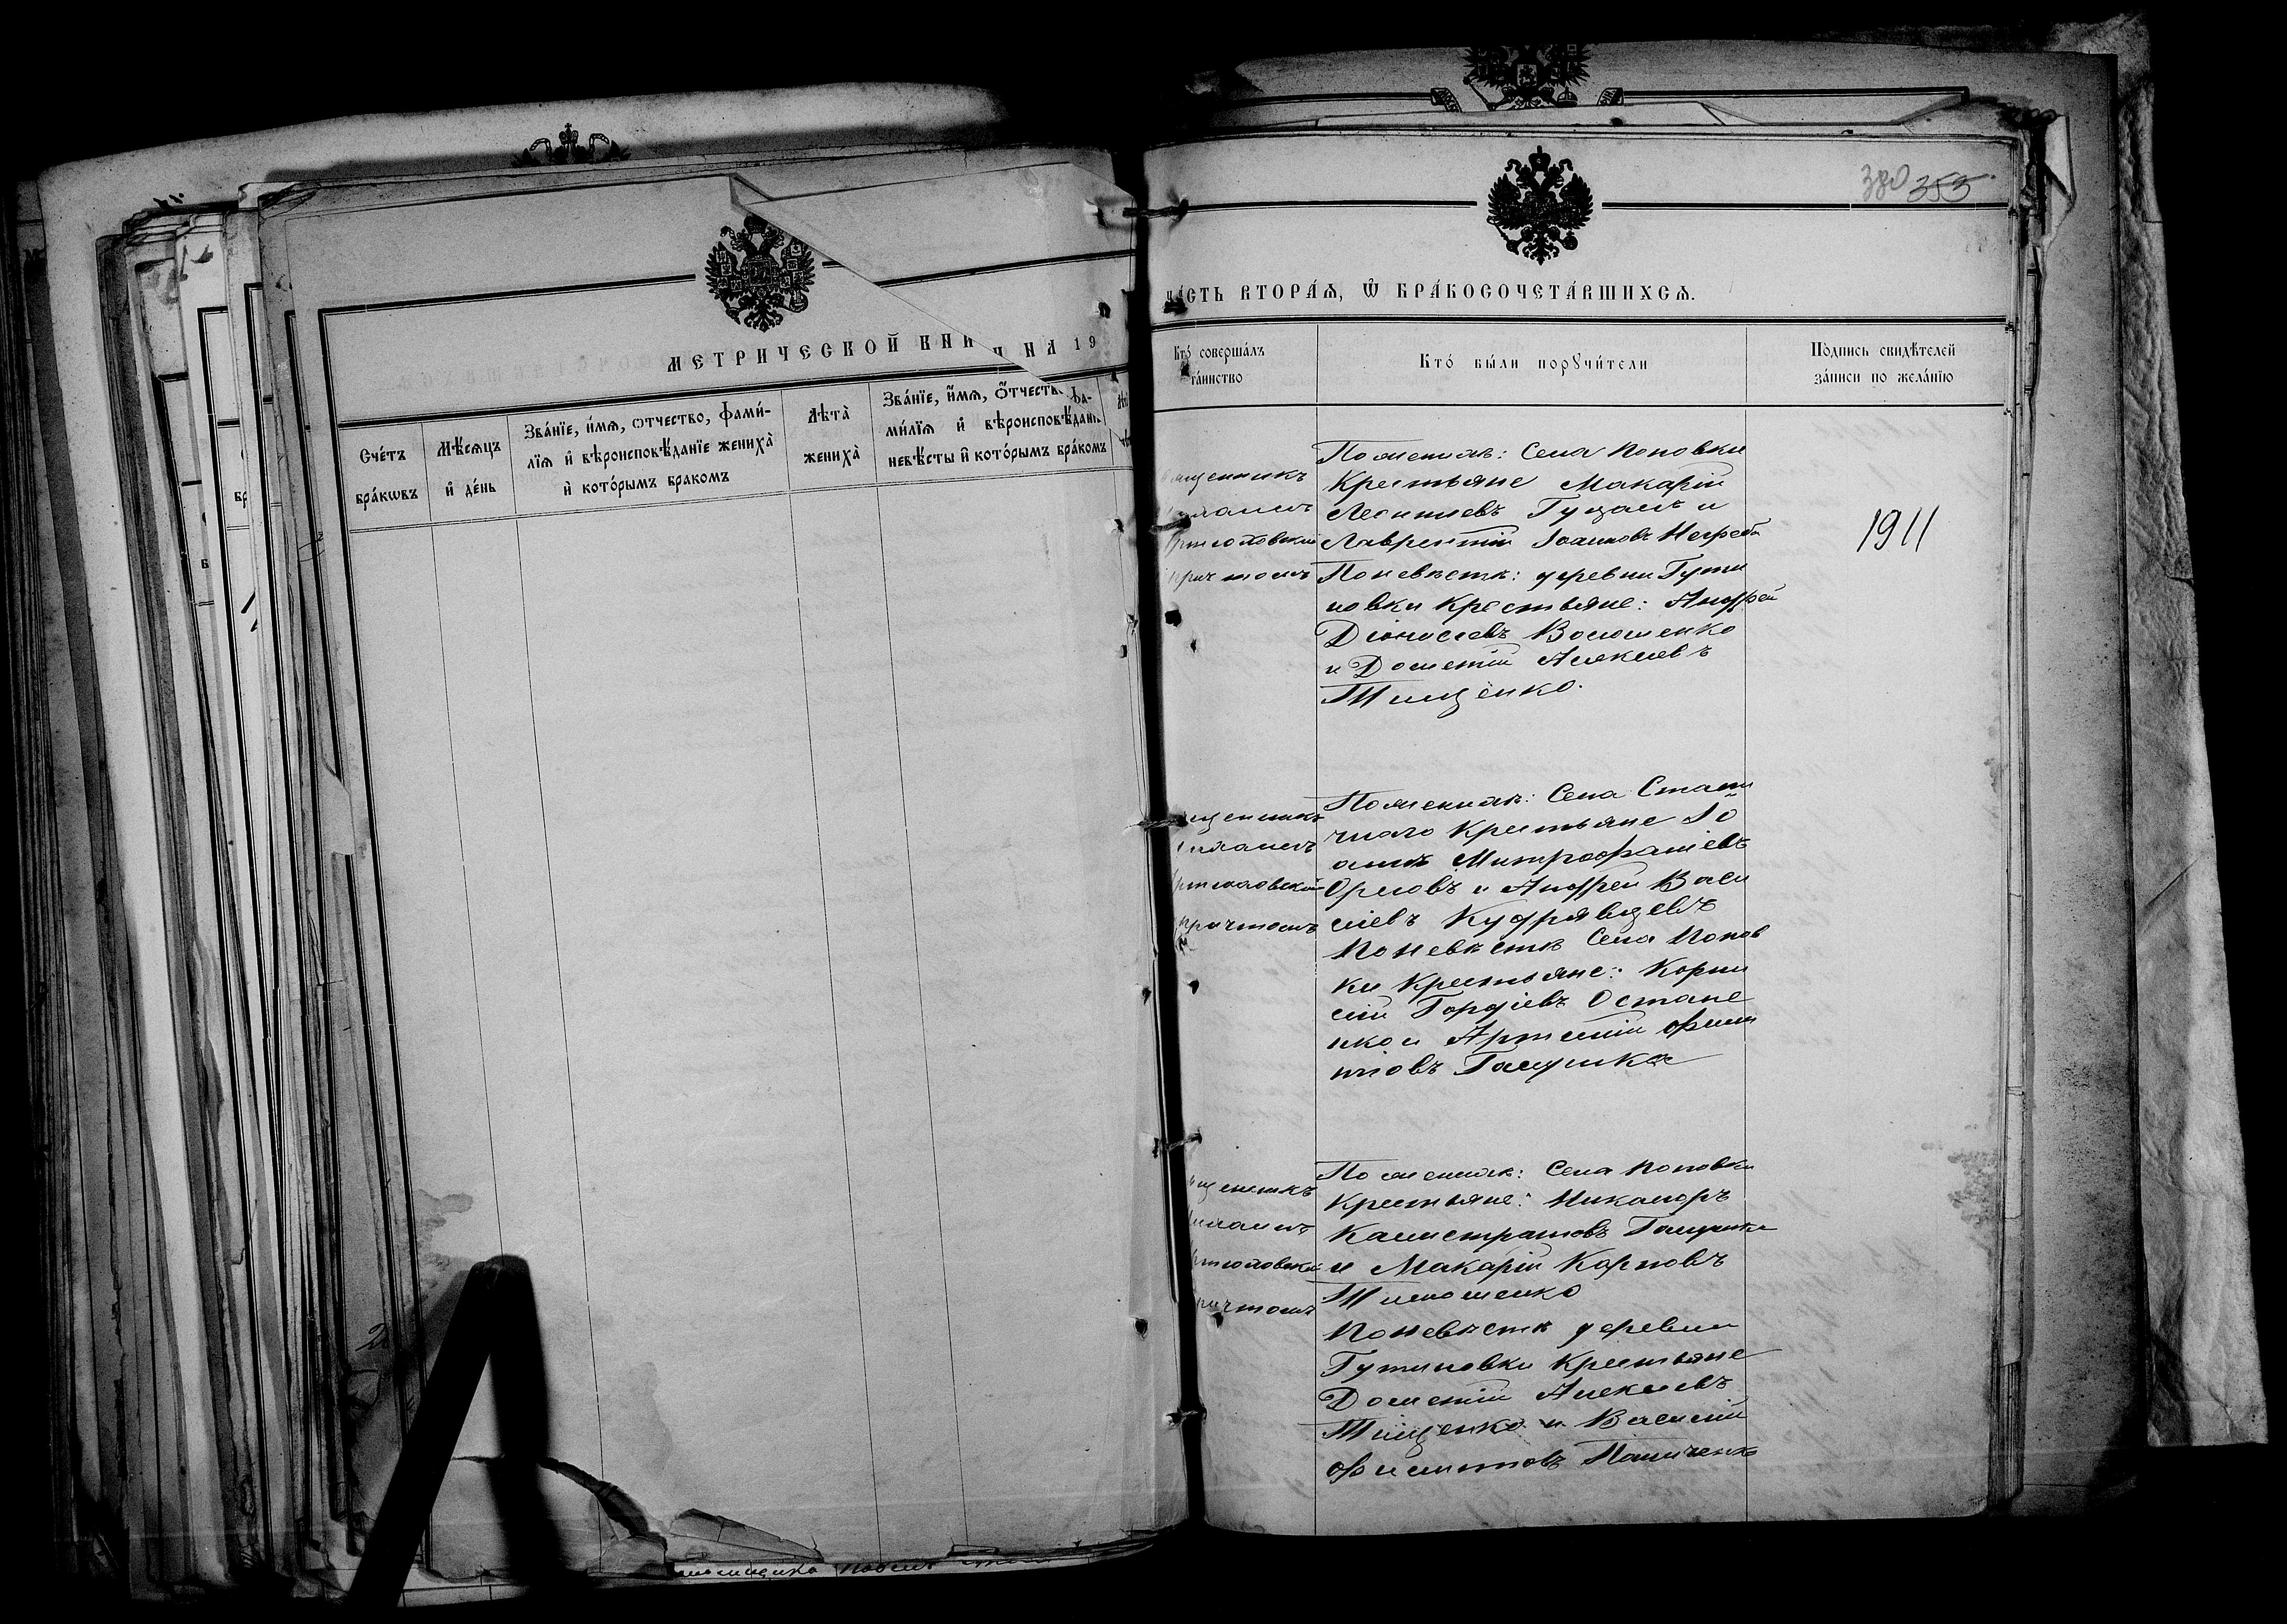 МЕТРИЧЕСКОЙ КНИ НА 19
Сче́тъ бра́кωвъ
Мѣ́сяцъ и҆ де́нь
Зва́нїе, и҆́мѧ, ѻтчество, фами́-
лїя и҆ вѣроисповѣ́данїе жениха̀
и҆ кото́рымъ бракомъ
Лѣта̀ жениха̀
Зва́нїе, и҆́мѧ, ѻтчеств фа-
ми́лїя и҆ вѣроисповѣ́данї
невѣ́сты и҆ кото́рымъ бра́комъ
380 353
ча́сть втора́ѧ, ѽ бра́косочета́вшихсѧ.
Кто́ соверша́лъ
та́инство
Кто́ бы́ли порꙋчи́тели
По́дпись свидѣ́телей
за́писи по жела́нїю
1911
По женихѣ: Села Поповки
Крестьяне Макарій
Леонтіевъ Гуцалъ и
Лаврентій Іоанновъ
По невѣстѣ: деревни Гути
новки крестьяне: Андрей
Діонисіевъ Волошенко
и Дометій Алексіевъ
Тищенко.
щенникъ
причтомъ
По женихѣ: Села
крестьяне Іо
аннъ Митрофаніевъ
Орловъ и Андрей Васи
ліевъ Кудрявцевъ
По невѣстѣ Села Попов
ки Крестьяне: Корни
лій Гордіевъ Остапе
нко и Артемій Фили
повъ Галушка
щенникъ
причтомъ
По женихѣ: Села Поповки
Крестьяне: Никаноръ
Калистратовъ Галушка
и Макарій Карповъ
Тимошенко
По невѣстѣ деревни
Гутиновки Крестьяне
Дометій Алексіевъ
Тищенко и Василій
щенникъ
ричтомъ